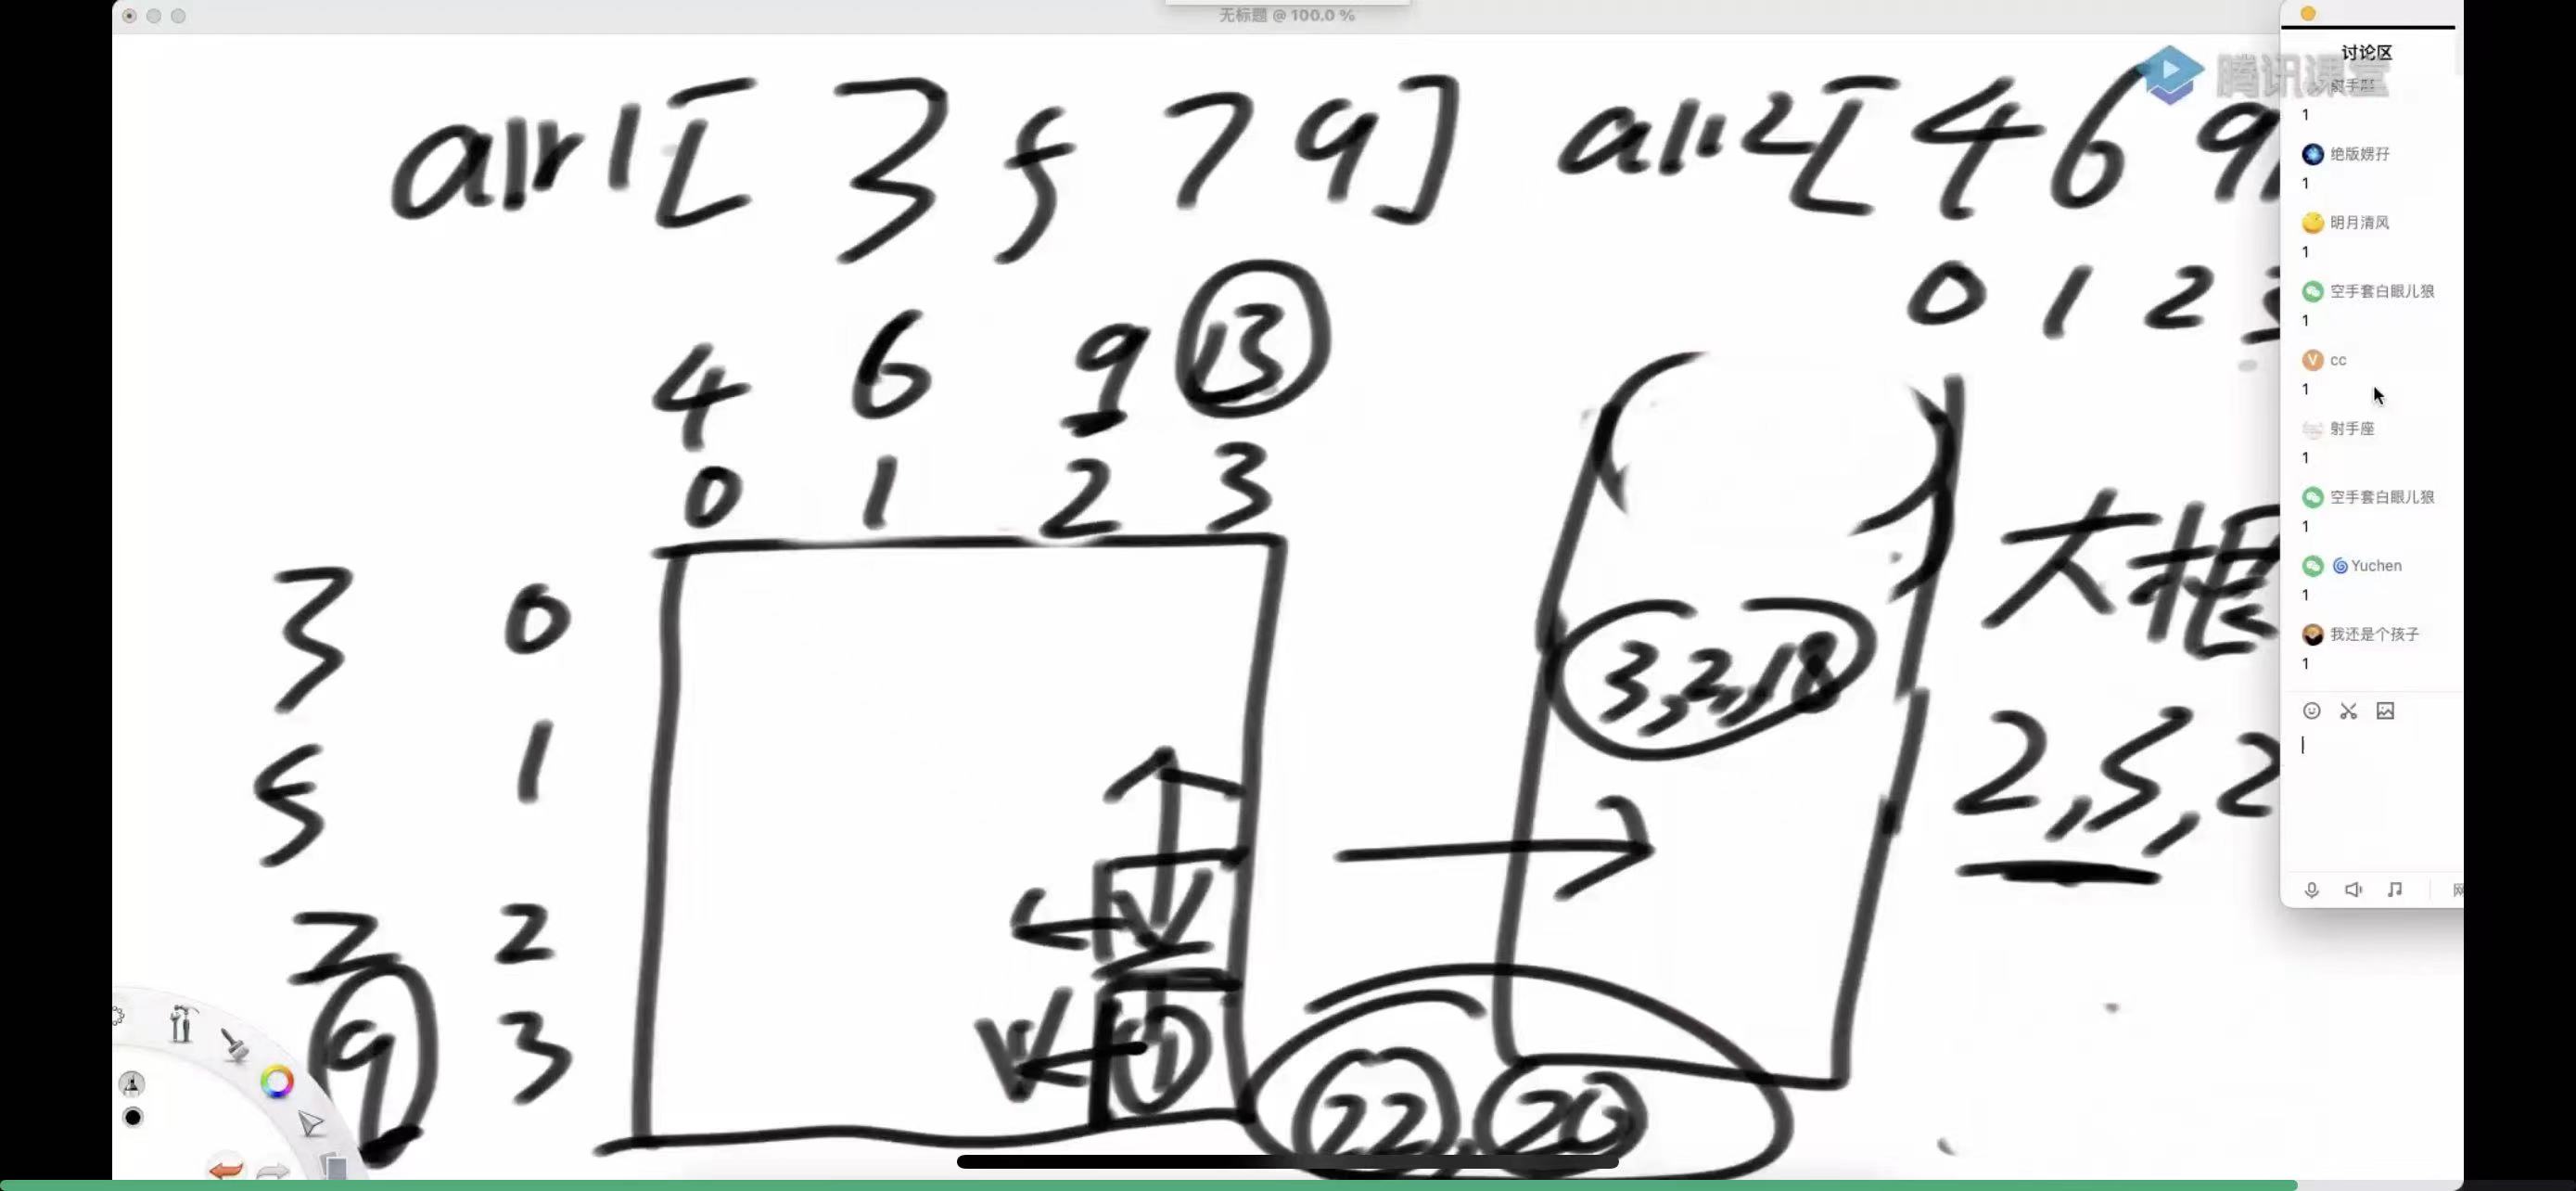 无标题 @ 100.0 %
arr1[ 3 5 7 9] arr2[ 4 6 9
0 1 2 3
4 6 9 13
0 1 2 3
3 0
5 1
7 2
9 3
3,2,18
22, 20
大根
2,3,2
腾讯课堂
讨论区
射手座
1
绝版娚孖
1
明月清风
1
空手套白眼儿狼
1
cc
1
射手座
1
空手套白眼儿狼
1
Yuchen
1
我还是个孩子
1